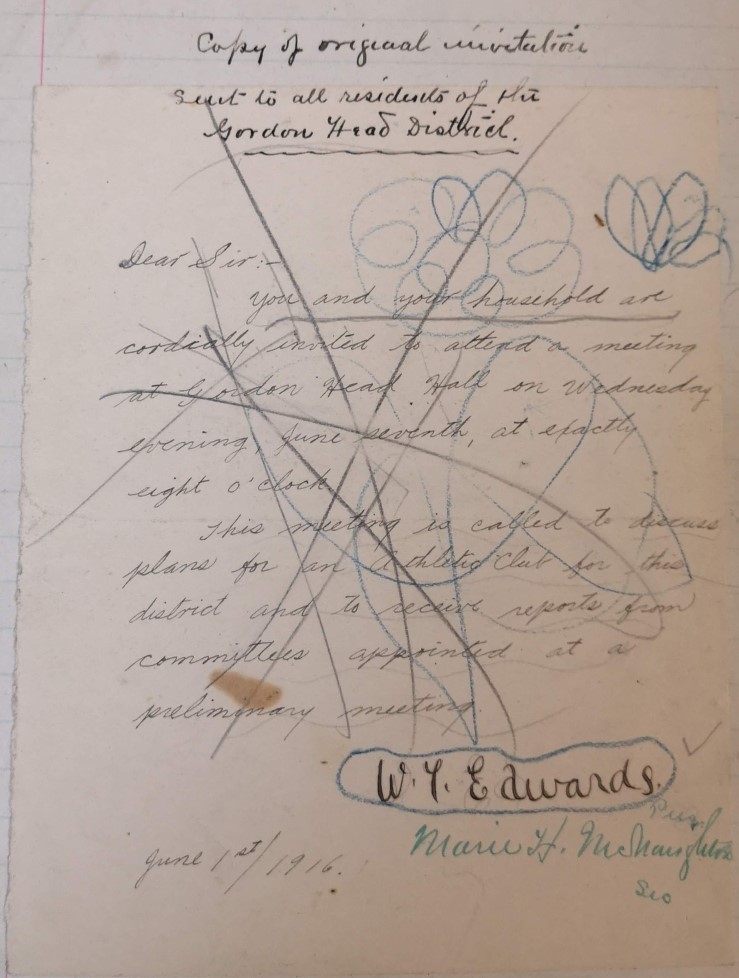 Copy of original invitation
Sent to all residents of the
Gordon Head District.
Dear Sir:-
You and your household are
cordially invited to attend a meeting
at Gordon Head Hall on Wednesday
evening, June seventh, at exactly
eight o'clock.
This meeting is called to discuss
plans for an Athletic Club for this
district and to receive reports from
committees appointed at a
preliminary meeting.
W. T. Edwards.
Pres
Marie H. McNaughton
Sec
June 1st/1916.